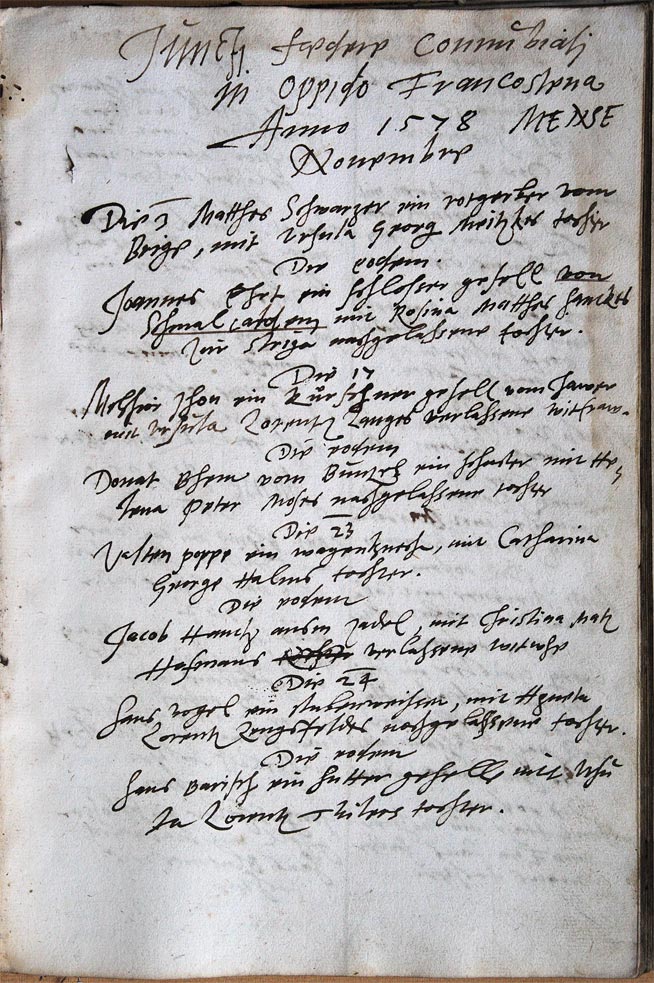 Juncti foedere Connubiali
in oppido Francostena
Anno 1578 MENSE
Novembre
Die 3 Matthes Schwarzer ein rotgerber vom
Brige, mit Ursula Georg tochter
Die eodem.
Joannes Ehrt ein schlosser gesell von
mit Rosina Matthes
zur Striga nachgelassene tochter.
Die 17
Melchior Thon ein Kürschner gesell vom Jawer
mit Ursula Lorentz Langes verlassene witfraw.
Die eodem
Donat Bhem vom Buntzel ein schuster mit He-
lena Peter Moses nachgelassene tochter
Die 23
Valten poppe ein wagenknecht, mit Catharina
George Halms tochter.
Die eodem
Jacob ausm Zadel, mit Christina Matz
Hofmans verlassene witwhe
Die 24
Hans Vogel ein, mit Agneta
Lorentz nachgelassene tochter.
Die eodem
Hans Barisch ein hutter geselle, mit Ursu
la Lorentz tochter.